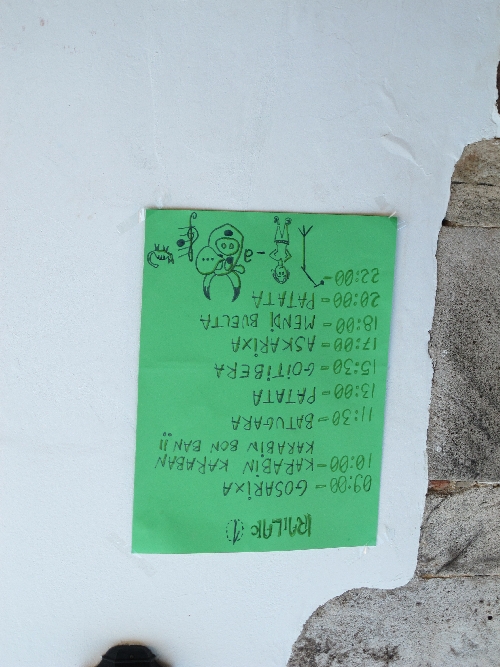 IRAILAK 1
09:00 - GOSARIXA
10:00 - KARABIN KARABAN
KARABIN BON BAN!!
11:30 - BATUGARA
13:00 - PATATA
15:30 - GOITIBERA
17:00 - ASKARIXA
18:00 - MENDI BUELTA
20:00 - PATATA
22:00 -